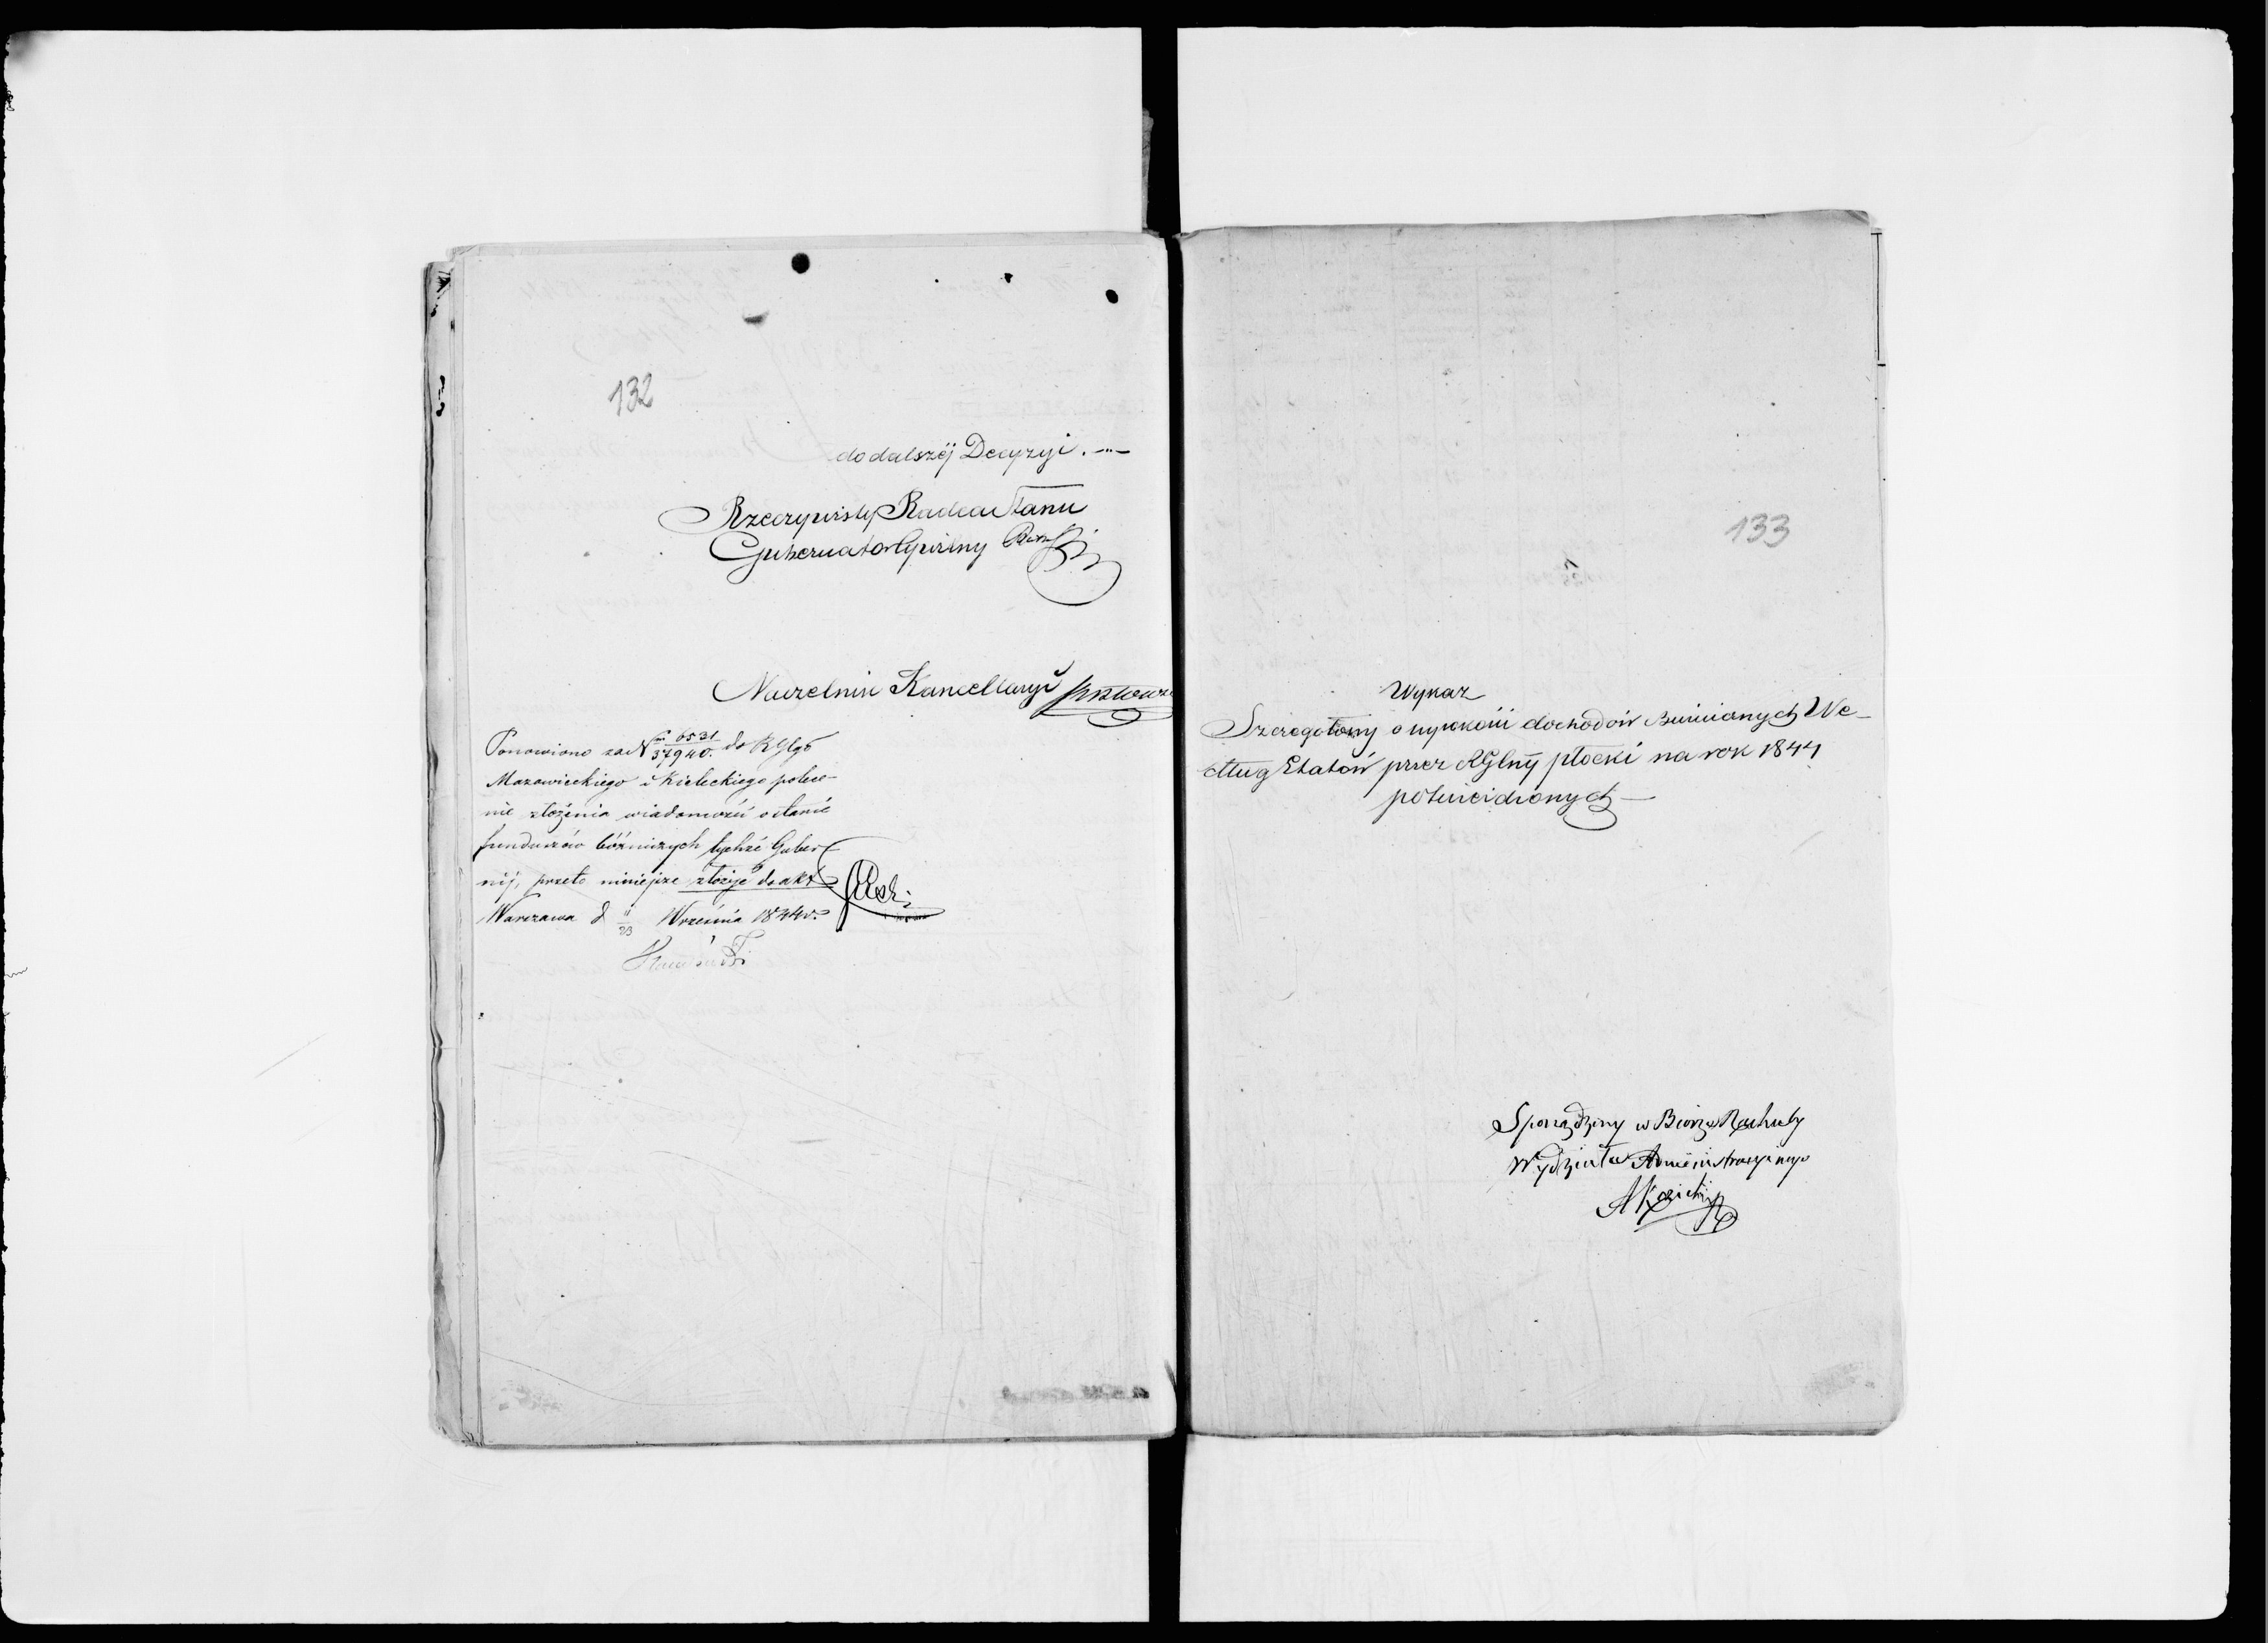 132
do dalszéj Decyzyi.
Rzeczywisty Radca Stanu
Gubernator Cywilny
Naczelnik Kancellaryi
Ponowiono za N 6531/37940. do RGlgo
Mazowieckiego i Kieleckiego polece-
nie złożenia wiadomości o stanie
funduszów bóżniczych tychże Guber-
nij, przeto niniejsze złożyć do akt
Warszawa d 11/23 Września 1844 r.
133
Wykaz
Szczegółowy o wysokości dochodów Bużnicznych We-
dług Etatów przez RGlny płocki na rok 1844
potwierdzonych
Sporządzony w Biórze Rachuby
Wydziału Administracyjnego